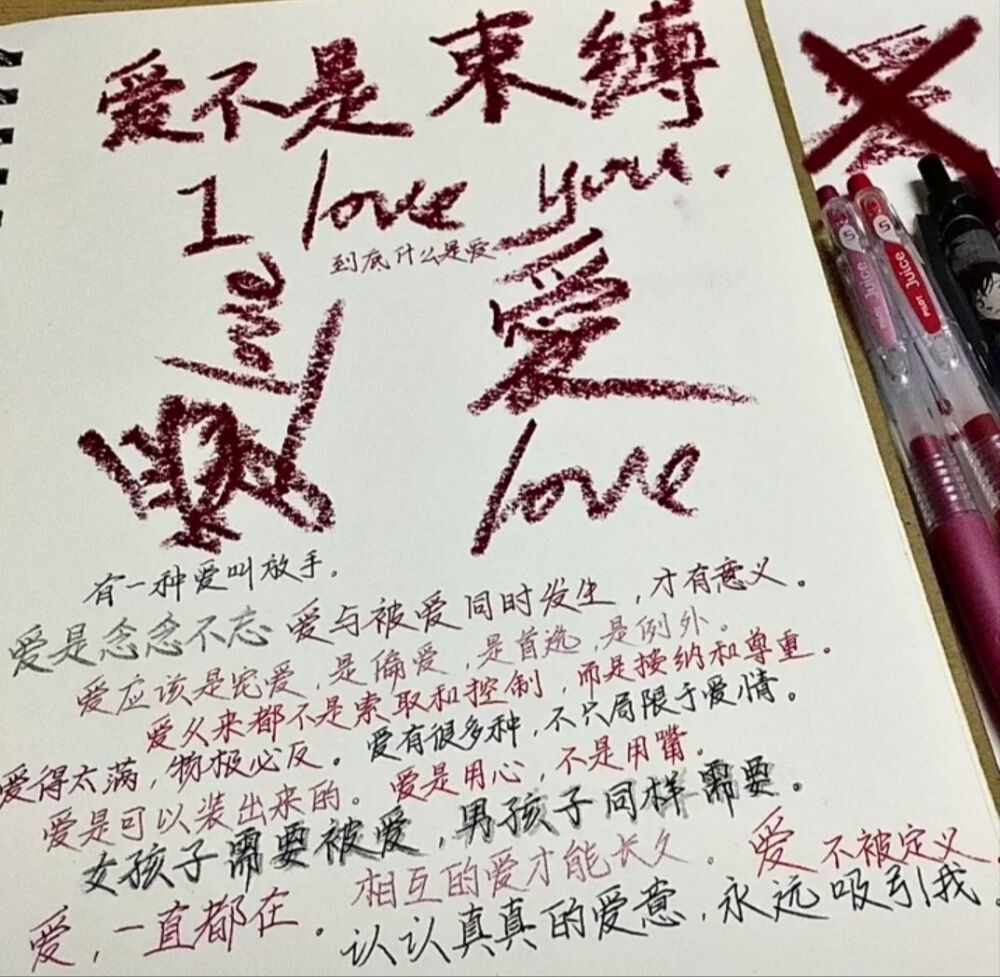 爱不是束缚
I love you.
到底什么是爱
爱
love
有一种爱叫放手。
爱是念念不忘 爱与被爱同时发生，才有意义。
爱应该是宠爱，是偏爱，是首选，是例外。
爱从来都不是索取和控制，而是接纳和尊重。
爱得太满，物极必反。爱有很多种，不只局限于爱情。
爱是可以装出来的。爱是用心，不是用嘴。
女孩子需要被爱，男孩子同样需要。
相互的爱才能长久。爱不被定义
爱，一直都在。
认认真真的爱意，永远吸引我。
5 Juice PILOT
5 Juice PILOT